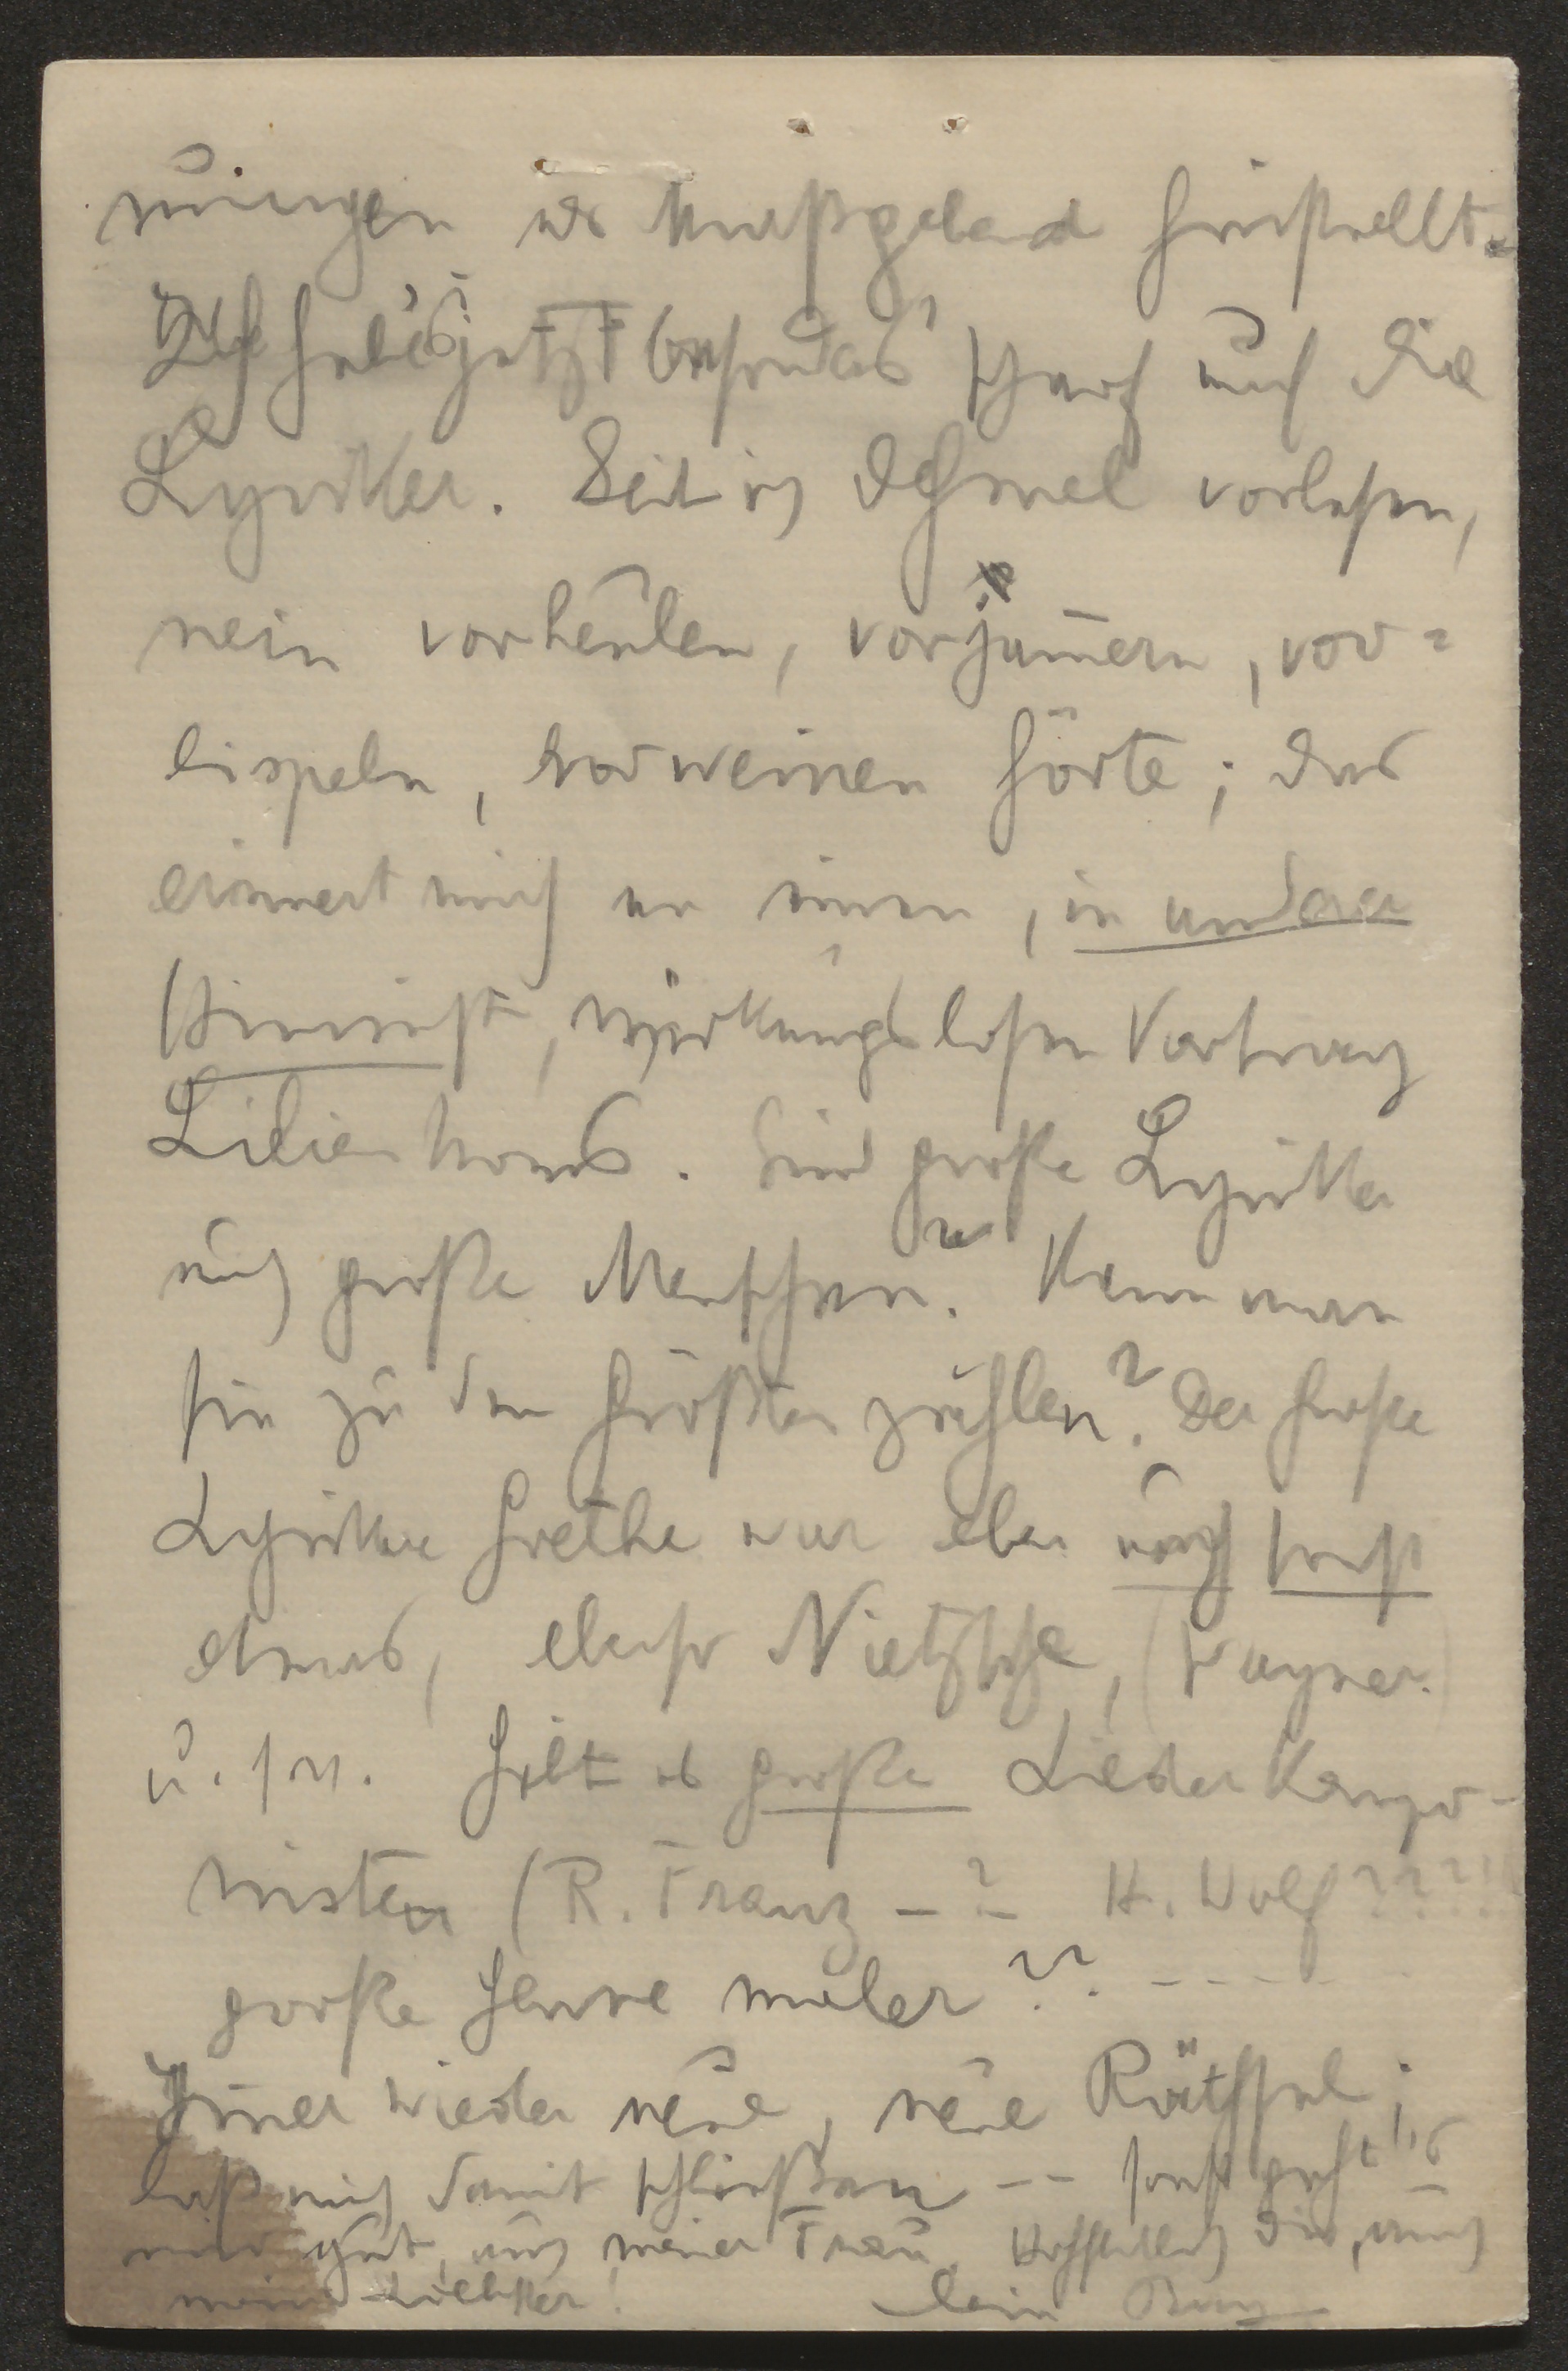 nungen als Maßgebend hinstellt.
Ich hab's jetzt besonders scharf auf die
Lyriker. Seit ich Dehmel vorlesen,
nein vorheulen, vorjam̅ern, vor=
lispeln, vorweinen hörte; das
erinnert mich an einen, in andrer
Hinsicht, wirkungslosen Vortrag
Liliencrons. Sind große Lyriker
auch große Menschen? Kann man
sie zu den Größten zählen? Der große
Lyriker Goethe war eben noch sonst
etwas, ebenso Nietzsche, (Wagner)
u. s w. Gibt es große Liederkompo-
nisten (R. Franz – ? – H. Wolf ???!!
große Genre maler ?? – – – – –
Im̅er wieder neue, neue Räthsel;
laß mich damit schließen – – sonst geht's
mir gut, auch meiner Frau. Hoffentlich Dir, auch
mein Liebster! Dein